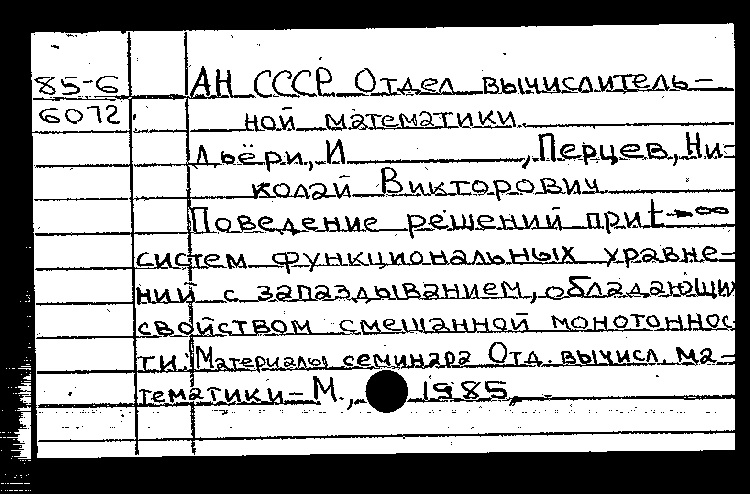 85-6 АН СССР Отдел вычислитель-
6072. ной математики.
Дьёри, И , Перцев, Ни-
колай Викторович
Поведение решений при t→∞
систем функциональных уравне-
ний с запаздыванием, обладающи
свойством смешанной монотоннос
ти: Материалы семинара Отд. вычисл. ма-
тематики - М., 1985, -